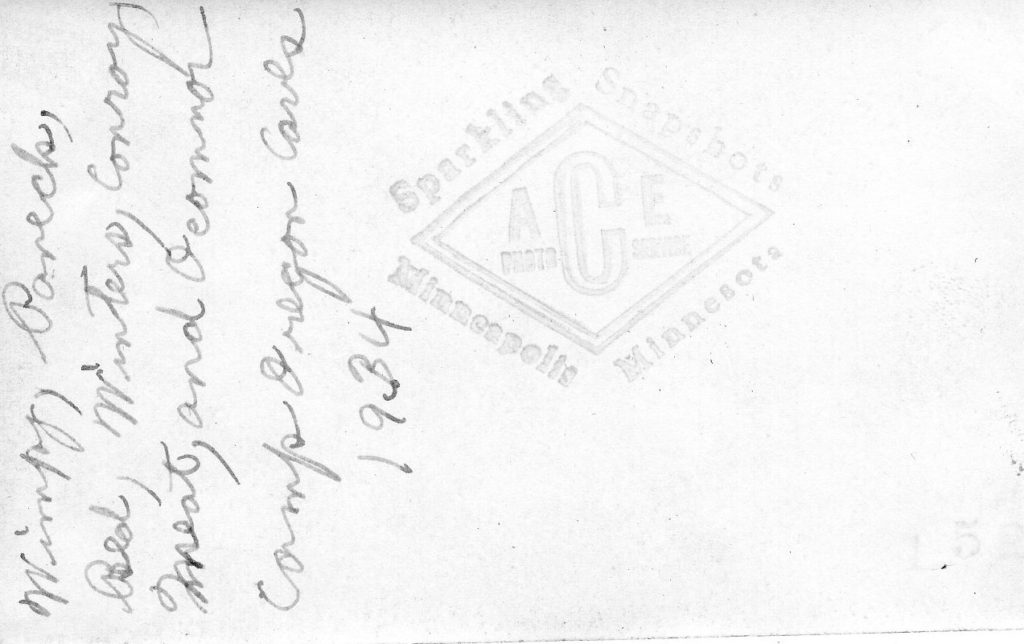 Wimpy, Pavech,
Red, Winters, Conroy
Meat, and Oconnor
Camp Oregon Caves
1934
Sparkling Snapshots
ACE
PHOTO SERVICE
Minneapolis Minnesota